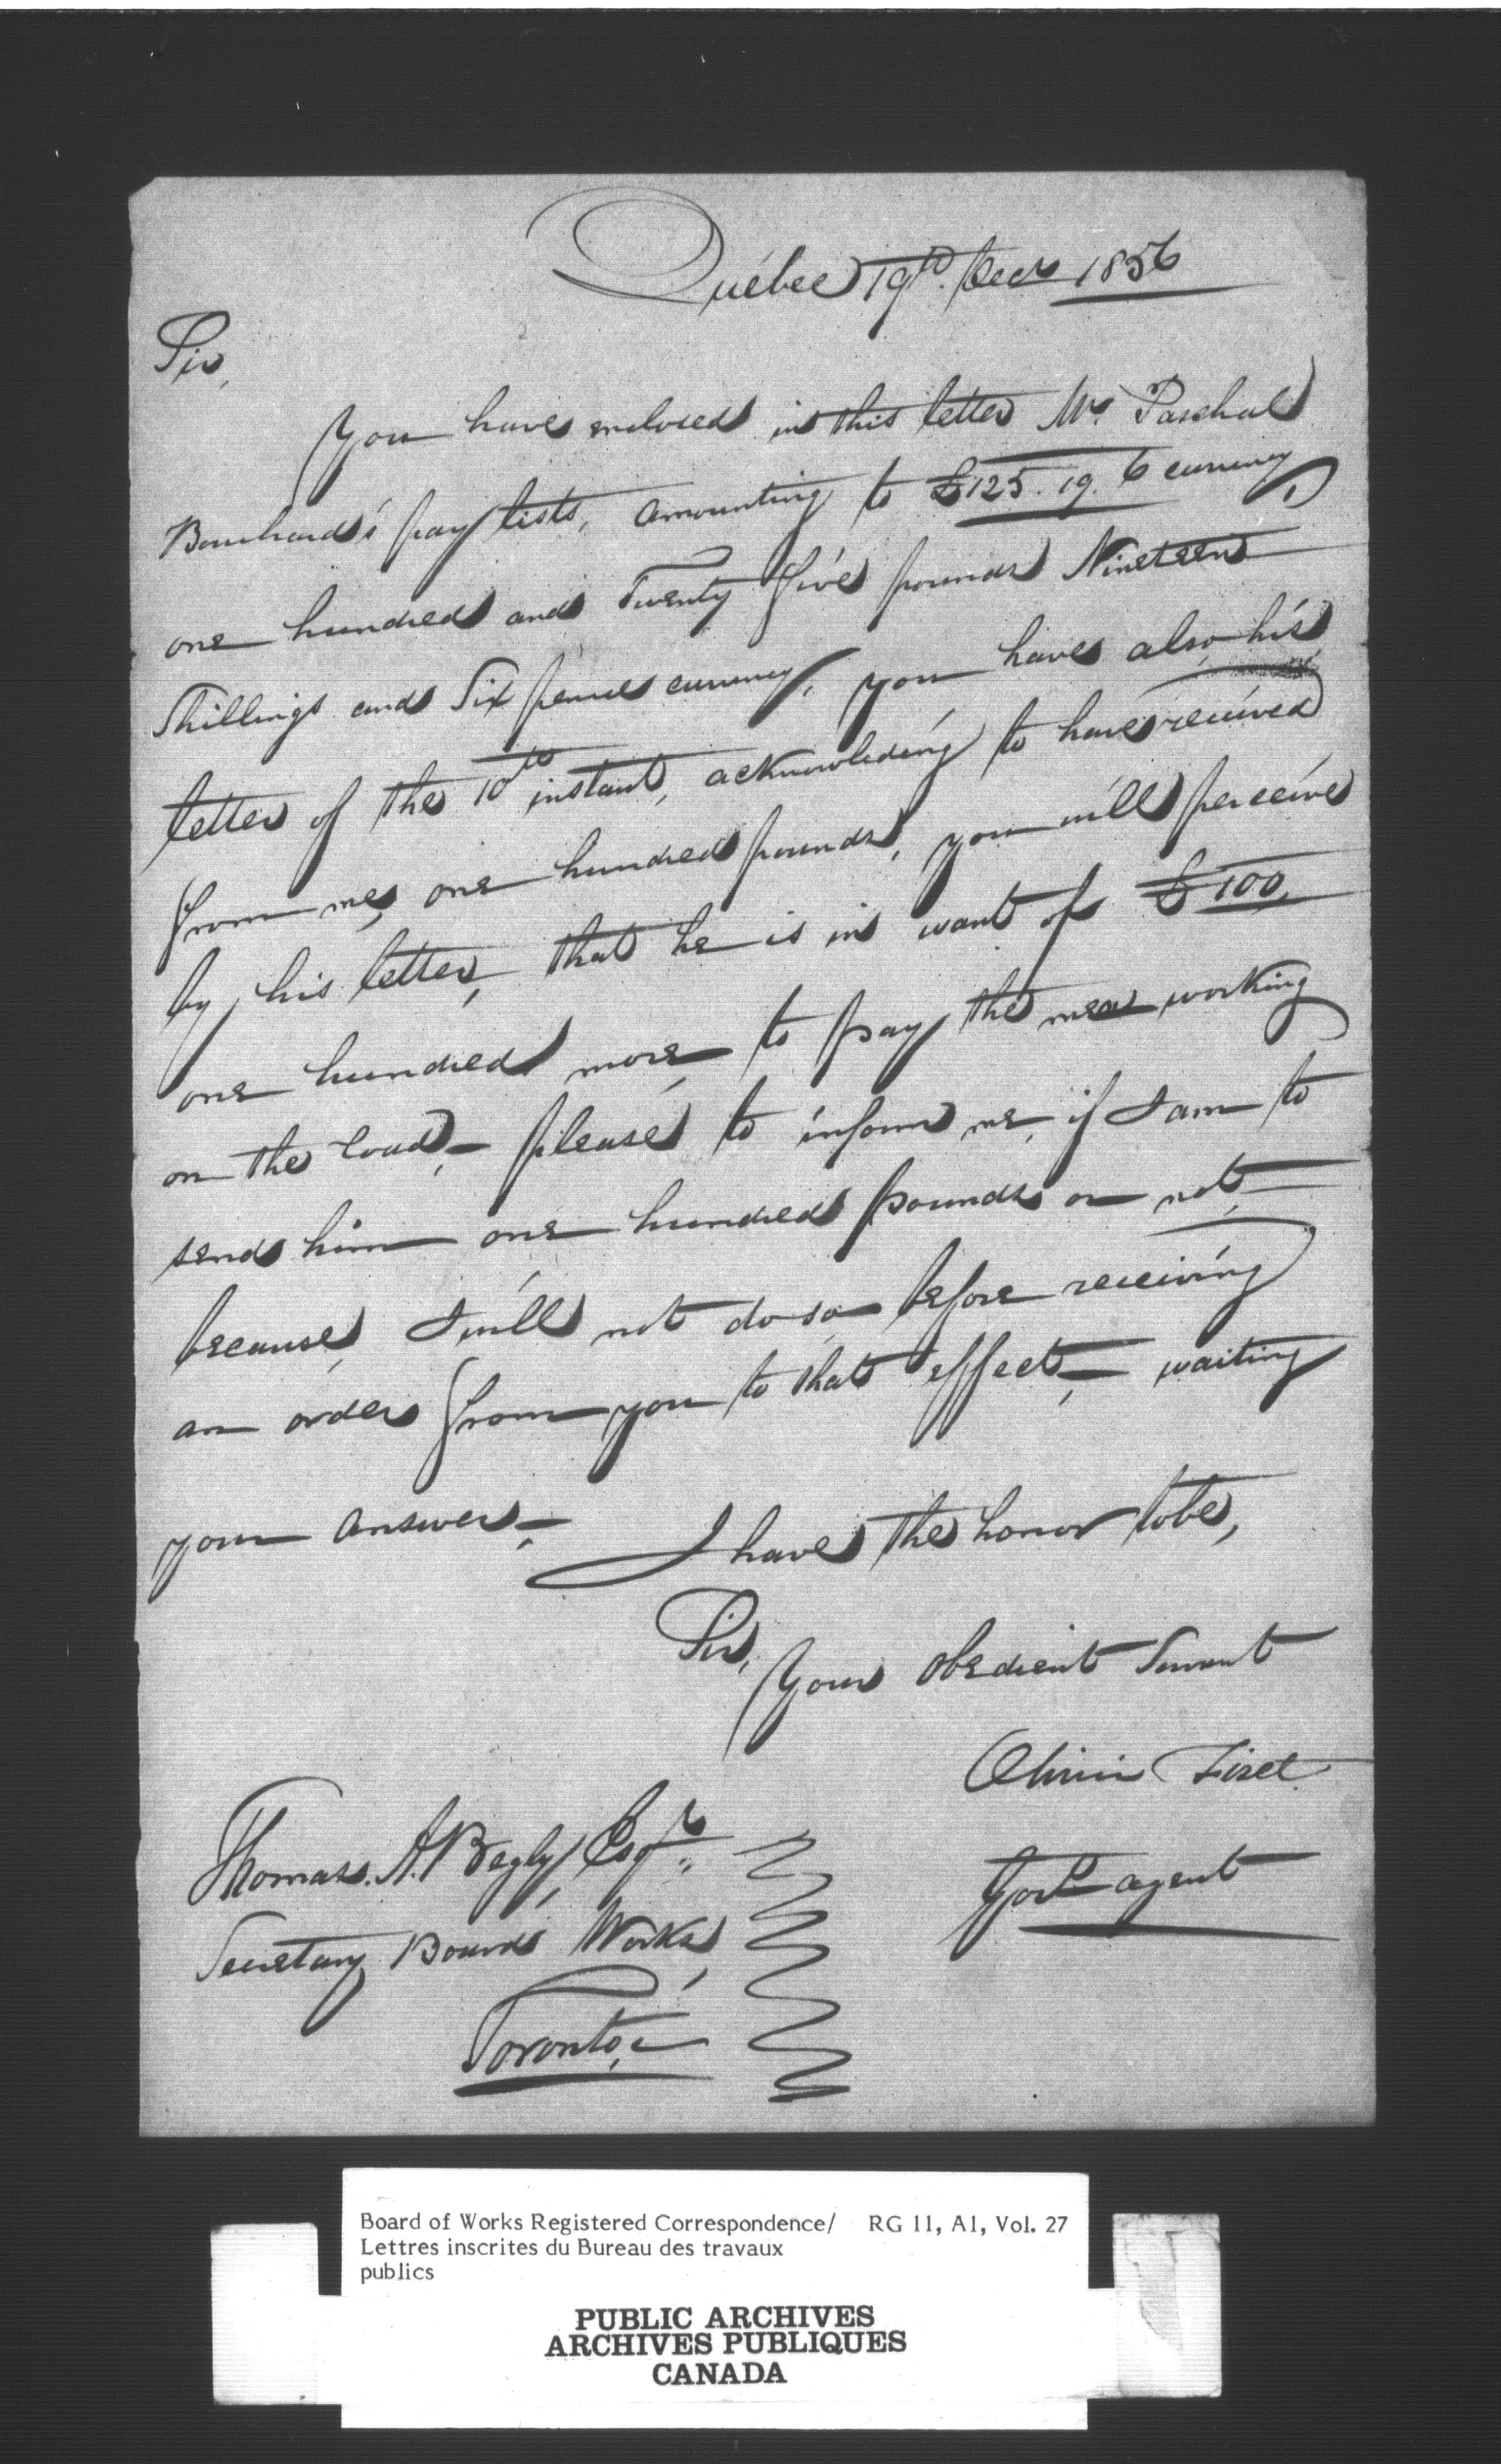 Québec 19th Decr 1856
Sir,
You have enclosed in this letter Mr. Paschal
Bouchard's pay lists, amounting to £125. 19. 6 currency,
one hundred and Twenty five pounds Nineteen
Shillings and Six pence currency, you have also his
letter of the 10th instant, acknowledging to have received
from me, one hundred pounds, you will perceive
by his letter, that he is in want of £100,
one hundred more to pay the men working
on the road,— please to inform me, if I am to
send him one hundred pounds or not,
because, I will not do so before receiving
an order from you to that effect,— waiting
your answer,—
I have the honor to be,
Sir,
Your Obedient Servant
Olivier Fiset
Govt agent
Thomas. A. Begly Esqr.
Secretary Board Works,
Toronto,—
Board of Works Registered Correspondence/ RG 11, A1, Vol. 27
Lettres inscrites du Bureau des travaux
publics
PUBLIC ARCHIVES
ARCHIVES PUBLIQUES
CANADA